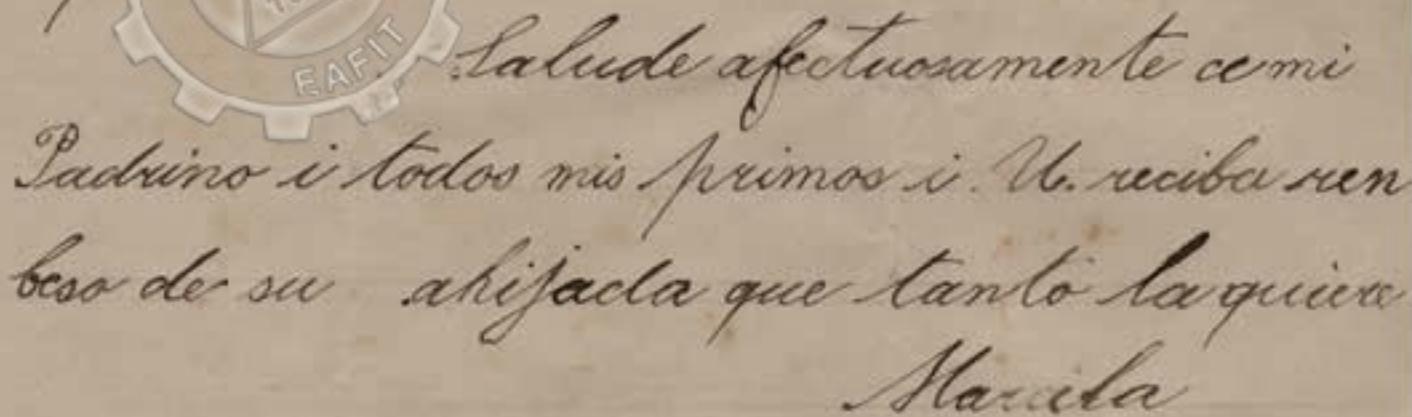 EAFIT
Salude afectuosamente a mi
Padrino i todos mis primos i U. reciba un
beso de su ahijada que tanto la quiere